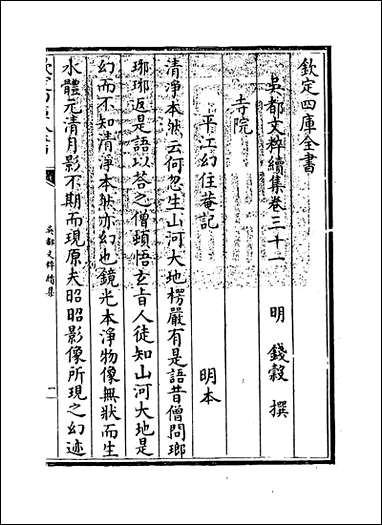 欽定四庫全書
吳都文粹續集卷三十一
明 錢榖 撰
寺院
平江幻住菴記 明本
清淨本然云何忽生山河大地楞嚴有是語昔僧問瑯
琊琊返是語以答之僧頓悟玄旨人徒知山河大地是
幻而不知清淨本然亦幻也鏡光本淨物像無狀而生
水體元清月影不期而現原夫昭昭影像所現之幻迹
吳都文粹續集